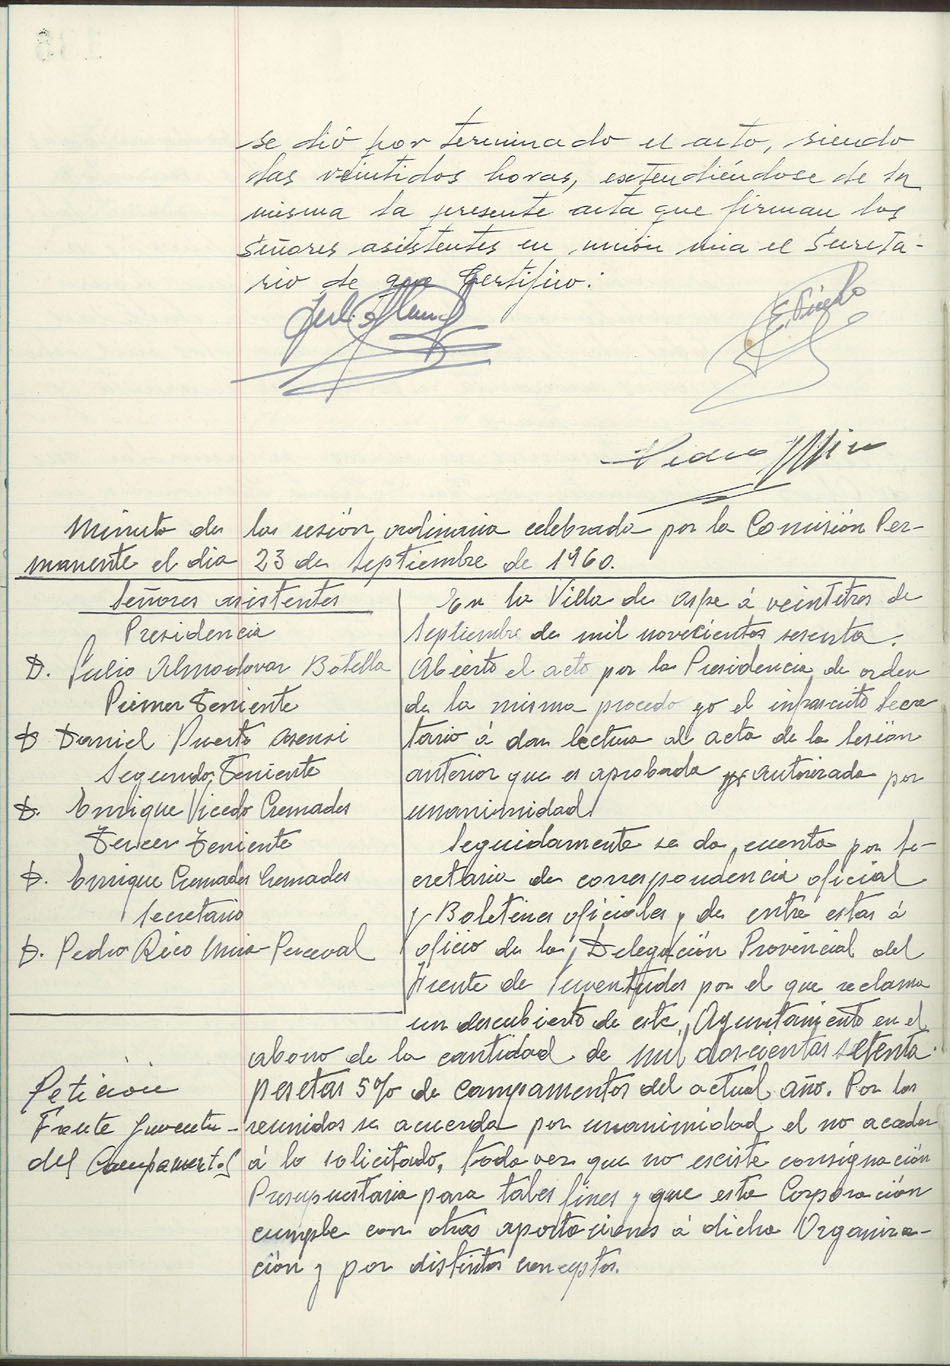 se dió por terminado el acto, siendo
las veintidos horas, extendiéndose de la
misma la presente acta que firman los
Señores asistentes en unión mia el Secreta-
rio de que Certifico:
Pedro
Minuta de la sesión ordinaria celebrada por la Comisión Per-
manente el dia 23 de Septiembre de 1960.
Señores asistentes
Presidencia
D. Julio Almodovar Botella
Primer Teniente
D Daniel Puerto Asensi
Segundo Teniente
D. Enrique Vicedo Cremades
Tercer Teniente
D. Enrique Cremades Cremades
Secretario
D. Pedro Rico Perceval
En la Villa de Aspe á veintitres de
Septiembre de mil novecientos sesenta.
Abierto el acto por la Presidencia, de orden
de la misma procedo yo el infrascrito Secre
tario á dar lectura al acta de la sesión
anterior que es aprobada y autorizada por
unanimidad.
Seguidamente se da cuenta por Se-
cretaria de correspondencia oficial
y Boletines oficiales y de entre estas á
oficio de la Delegación Provincial del
Frente de Juventudes por el que reclama
un descubierto de este Ayuntamiento en el
abono de la cantidad de mil doscientas setenta
pesetas 5% de campamentos del actual año. Por los
reunidos se acuerda por unanimidad el no acceder
á lo solicitado, toda vez que no esciste consignación
Presupuestaria para tales fines y que esta Corporación
cumple con otras aportaciones á dicha Organiza-
ción y por distintos conceptos.
Petición
Frente Juventu-
des Campamentos